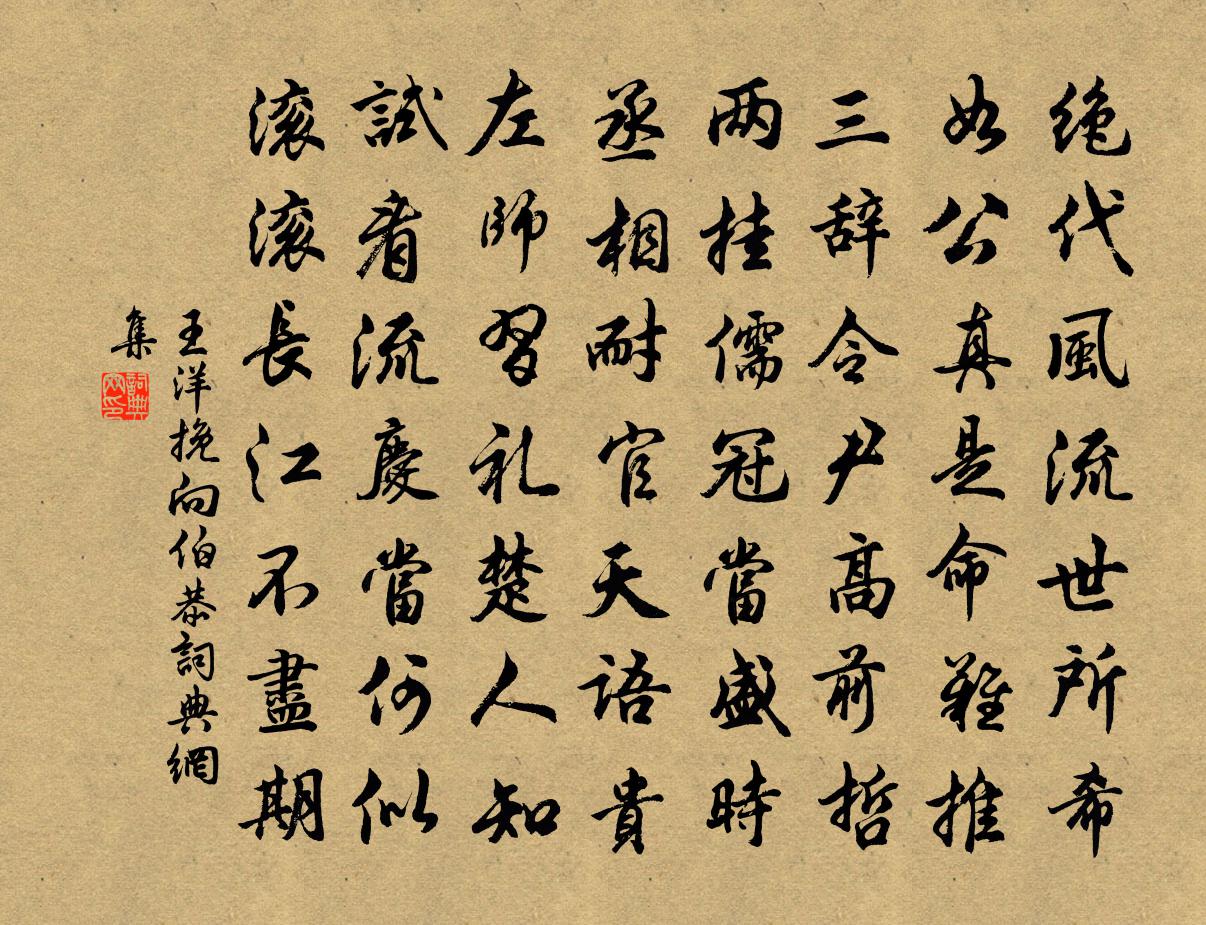 绝代風流世所希
如公真是命難推
三辞令尹高前哲
两挂儒冠當盛時
丞相耐官天語貴
左師習礼楚人知
試看流慶當何似
滚滚長江不盡期
王洋挽向伯恭詞典網
集
詞典網印